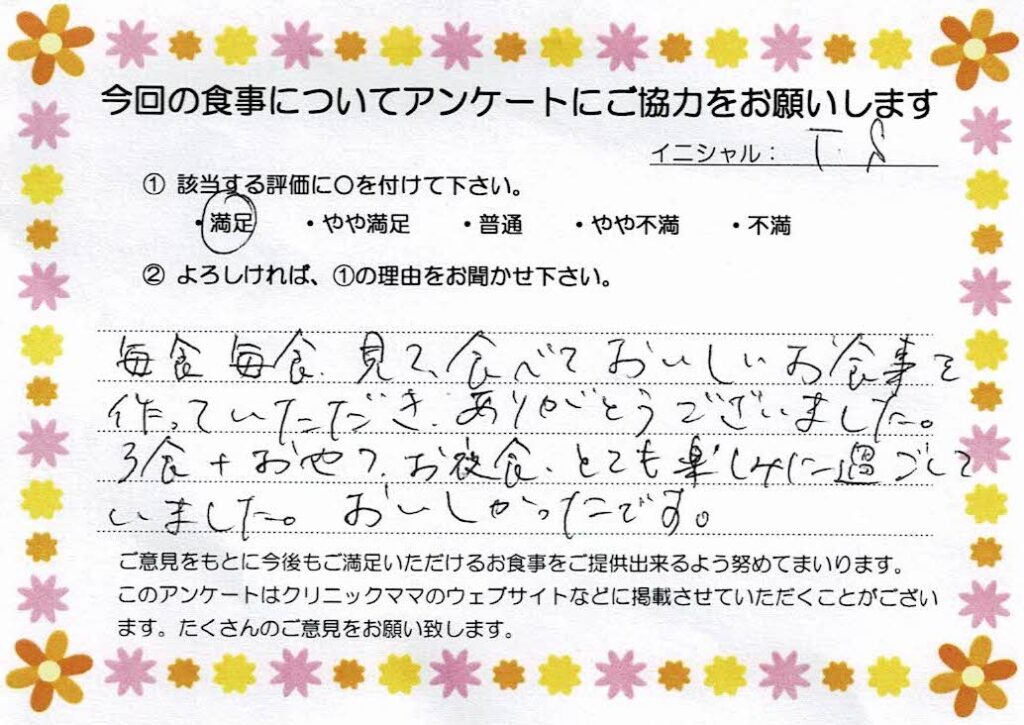 今回の食事についてアンケートにご協力をお願いします
イニシャル： T.S
① 該当する評価に〇を付けて下さい。
・満足 ・やや満足 ・普通 ・やや不満 ・不満
② よろしければ、①の理由をお聞かせ下さい。
毎食毎食、見て、食べておいしいお食事を
作っていただき、ありがとうございました。
3食+おやつ、お夜食、とても楽しみに過ごして
いました。おいしかったです。
ご意見をもとに今後もご満足いただけるお食事をご提供出来るよう努めてまいります。
このアンケートはクリニックママのウェブサイトなどに掲載させていただくことがござい
ます。たくさんのご意見をお願い致します。